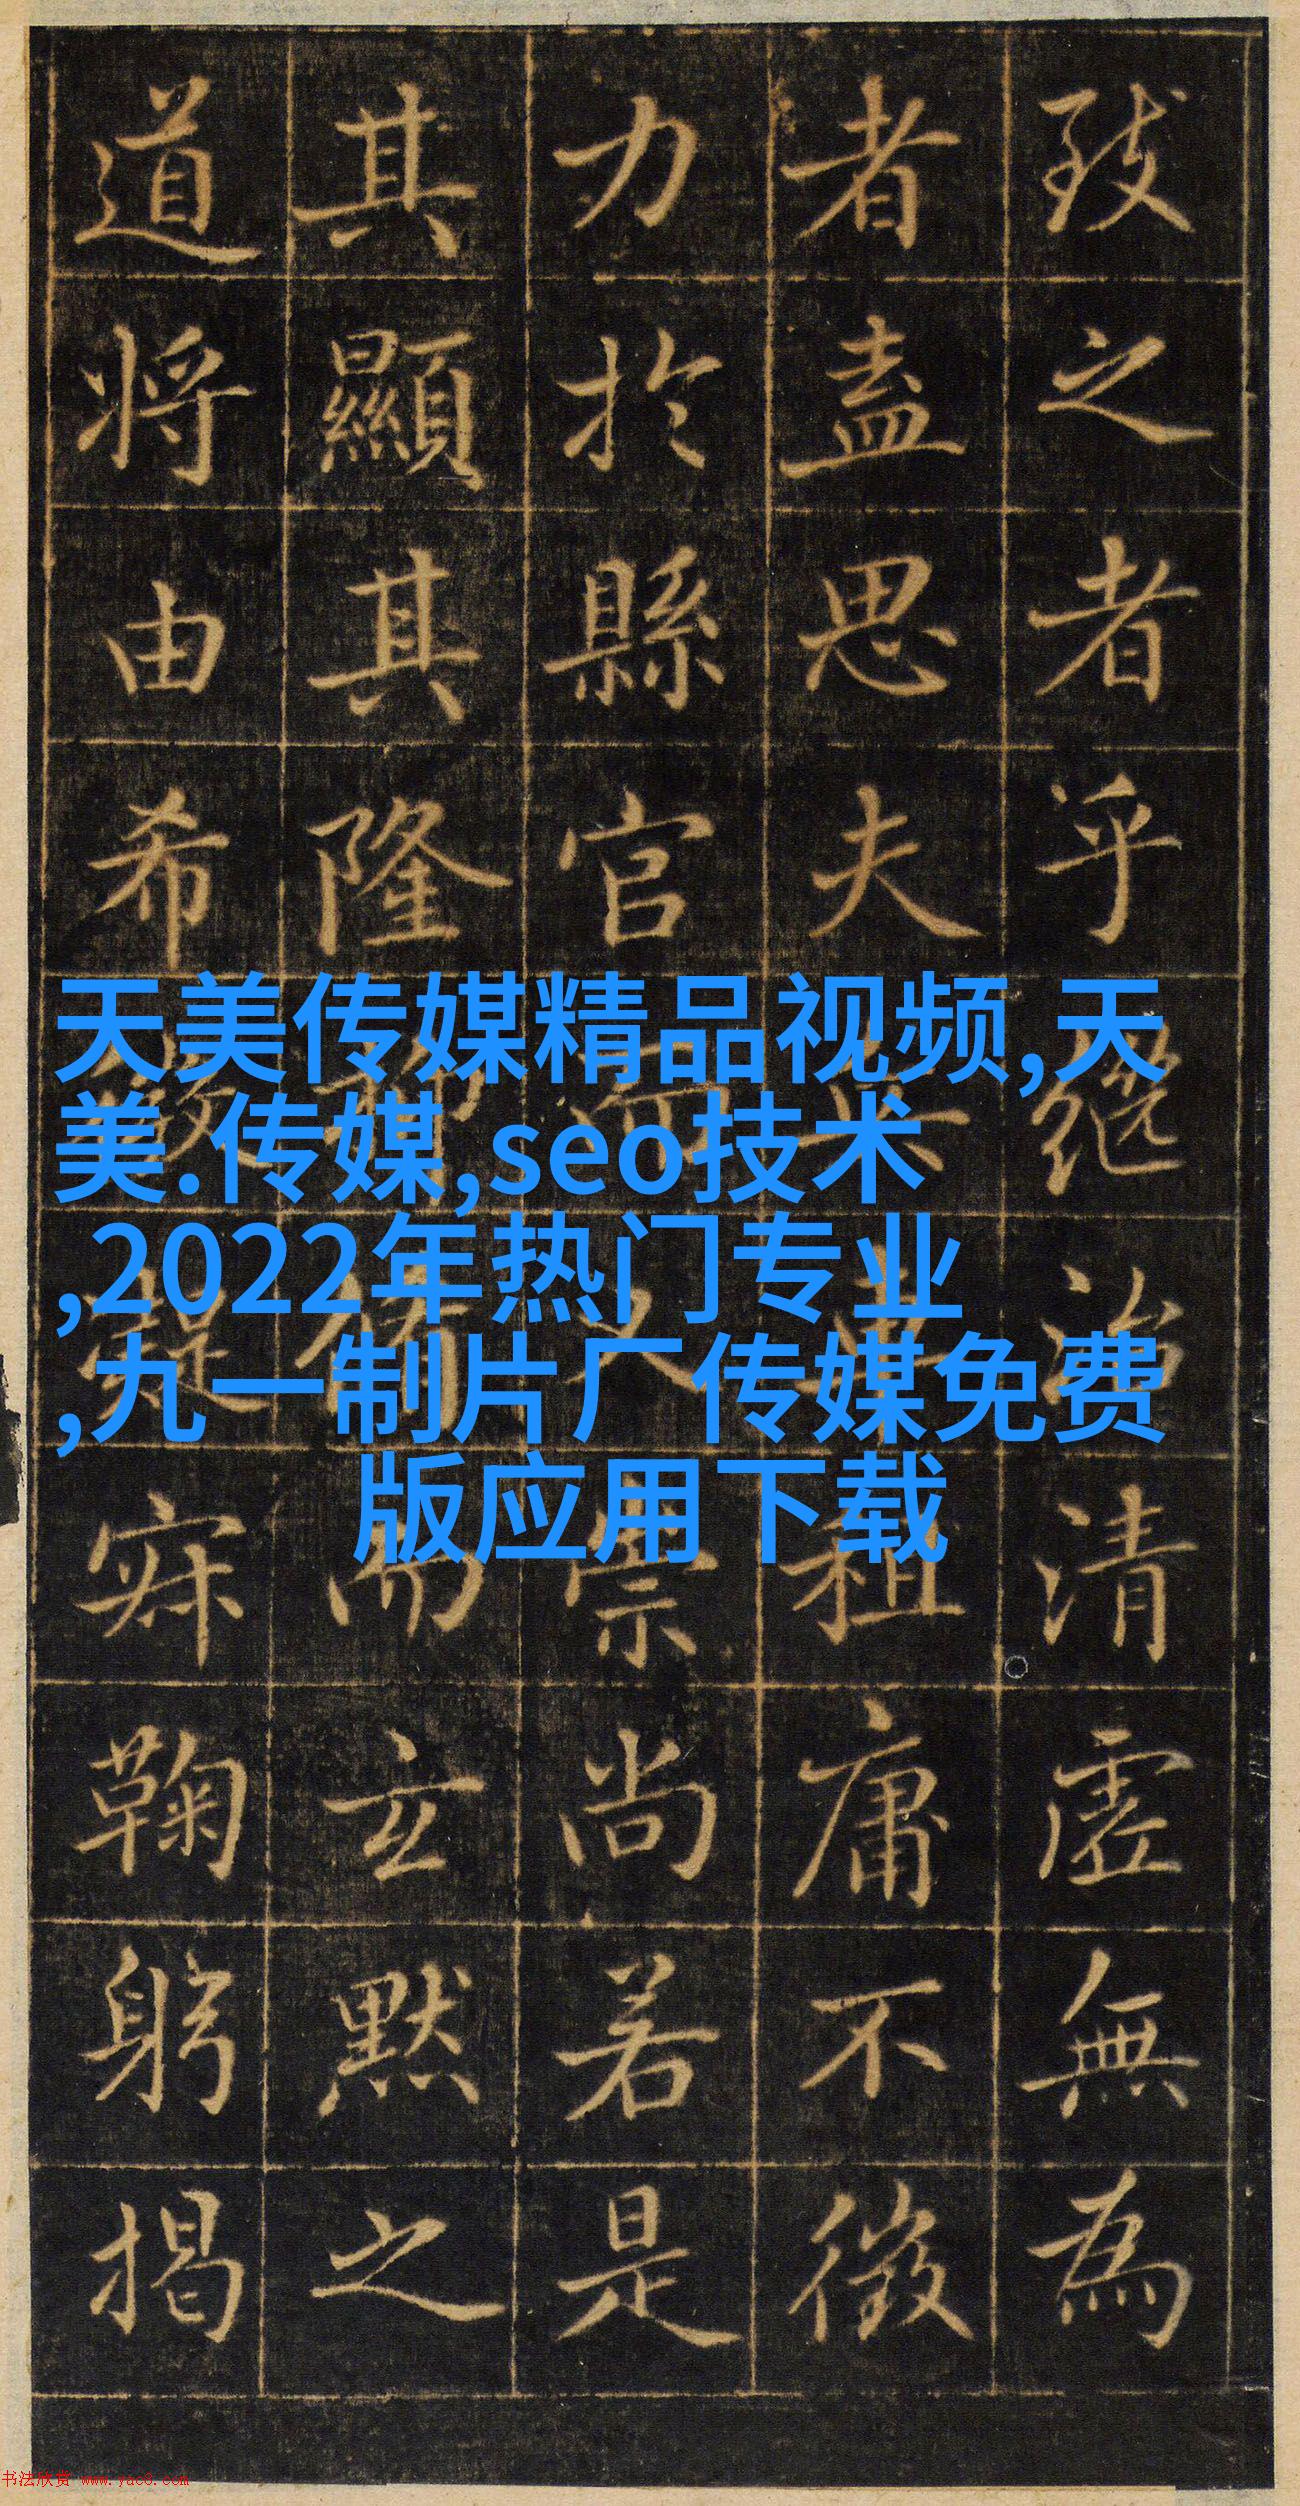 致之者乎繼治清虛無為
者盡思夫祖庸不徵
力於縣官而又崇尚若是
其顯其隆而玄默之
道將由希凝寂鞠躬揭
天美传媒精品视频,天
美.传媒,seo技术
,2022年热门专业
,九一制片厂传媒免费
版应用下载
书法欣赏 www.yac8.com